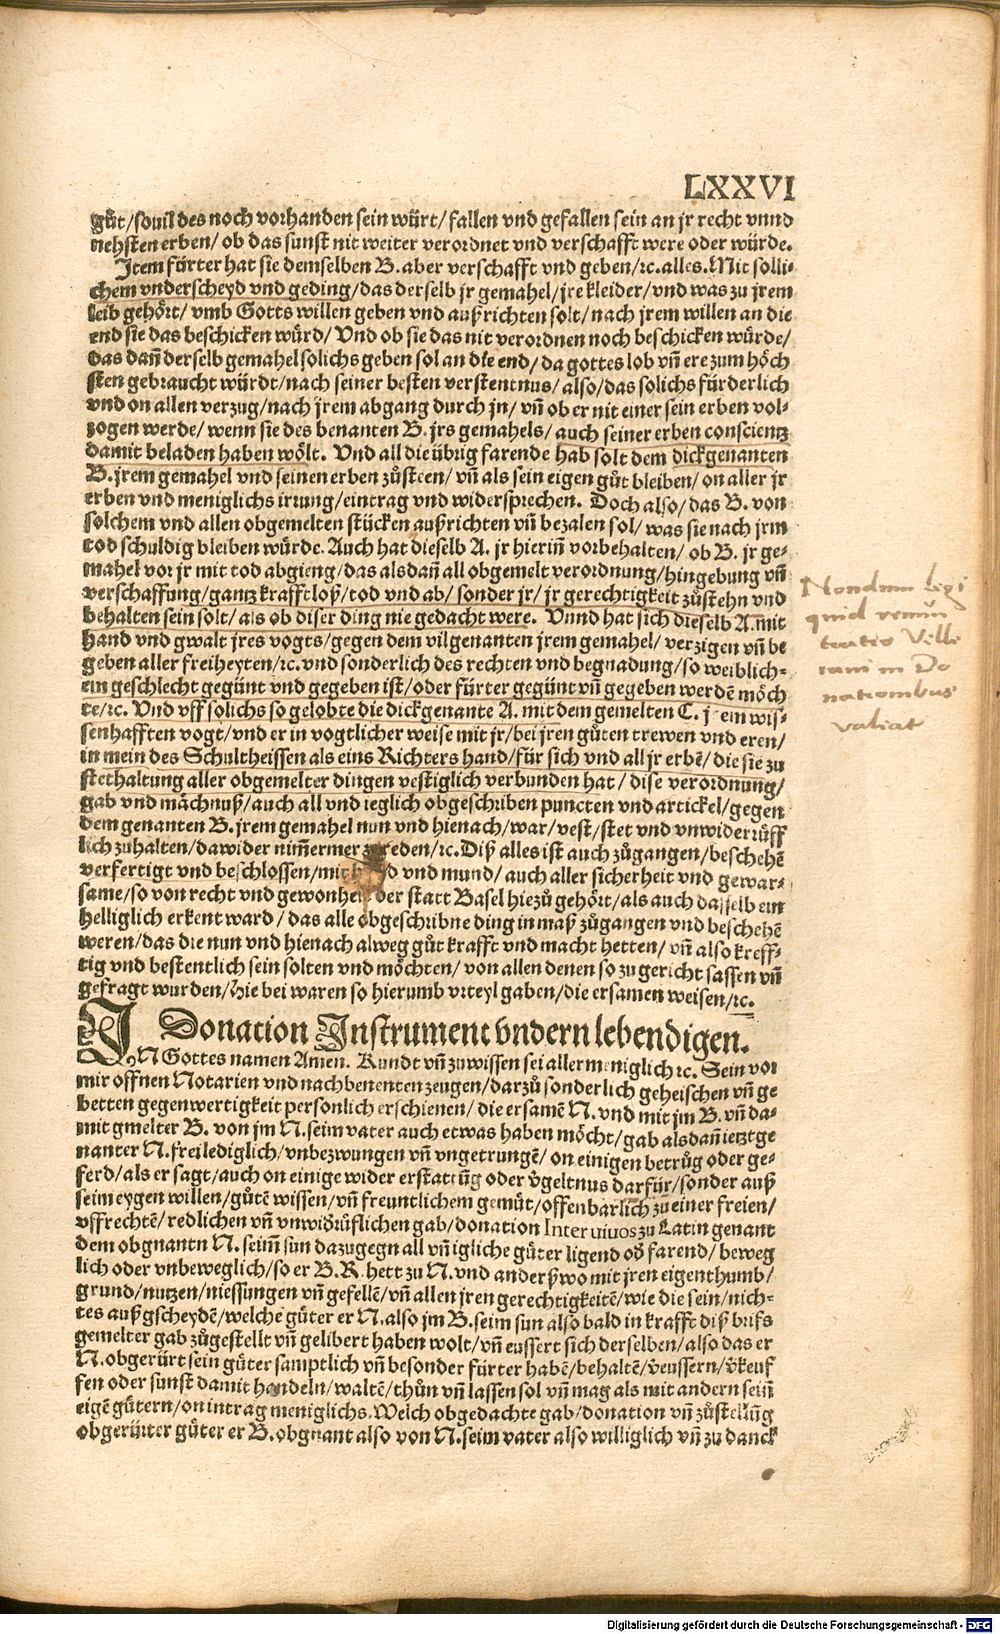 LXXVI
gůt/souil des noch vorhanden sein würt/fallen vnd gefallen sein an jr recht vnnd
nehsten erben/ ob das sunst nit weiter verordnet vnd verschafft were oder würde.
Item fürter hat sie demselben B. aber verschafft vnd geben/ꝛc. alles. Mit solli-
chem vnderscheyd vnd geding/das derselb jr gemahel/jre kleider/vnd was zu jrem
leib gehört/ vmb Gotts willen geben vnd außrichten solt/nach jrem willen an die
end sie das beschicken würd/ Vnd ob sie das nit verordnen noch beschicken würde/
das dañ derselb gemahel solichs geben sol an die end/da gottes lob vñ ere zum höch
sten gebraucht würdt/nach seiner besten verstentnus/also/das solichs fürderlich
vnd on allen verzug/nach jrem abgang durch jn/ vñ ob er nit einer sein erben vol-
zogen werde/wenn sie des benanten B. jrs gemahels/auch seiner erben conscientz
damit beladen haben wölt. Vnd all die übrig farende hab solt dem dickgenanten
B. jrem gemahel vnd seinen erben zůsteen/ vñ als sein eigen gůt bleiben/on aller jr
erben vnd meniglichs irrung/eintrag vnd widersprechen. Doch also/das B. von
solchem vnd allen obgemelten stücken außrichten vñ bezalen sol/was sie nach jrm
tod schuldig bleiben würde. Auch hat dieselb A. jr hieriñ vorbehalten/ ob B. jr ge-
mahel vor jr mit tod abgieng/das alsdañ all obgemelt verordnung/hingebung vñ
verschaffung/gantz krafftloß/tod vnd ab/sonder jr/jr gerechtigkeit zůstehn vnd
behalten sein solt/als ob diser ding nie gedacht were. Vnnd hat sich dieselb A. mit
hand vnd gwalt jres vogts/gegen dem vilgenanten jrem gemahel/ verzigen vñ be
geben aller freiheyten/ꝛc. vnd sonderlich des rechten vnd begnadung/so weiblich-
em geschlecht gegünt vnd gegeben ist/oder fürter gegünt vñ gegeben werdẽ möch
te/ꝛc. Vnd vff solichs so gelobte die dickgenante A. mit dem gemelten C. jrem wis-
senhafften vogt/vnd er in vogtlicher weise mit jr/bei jren gůten trewen vnd eren/
in mein des Schultheissen als eins Richters hand/für sich vnd all jr erbẽ/die sie zu
stethaltung aller obgemelter dingen vestiglich verbunden hat/ dise verordnung/
gab vnd mächnuß/auch all vnd ieglich obgeschriben puncten vnd artickel/gegen
dem genanten B. jrem gemahel nun vnd hienach/war/vest/stet vnd vnwiderrüff
lich zuhalten/dawider nim̃ermer zureden/ꝛc. Diß alles ist auch zůgangen/beschehẽ
verfertigt vnd beschlossen/mit hand vnd mund/ auch aller sicherheit vnd gewar-
same/so von recht vnd gewonheit der statt Basel hiezů gehört/als auch dasselb ein
helliglich erkent ward/ das alle obgeschribne ding in maß zůgangen vnd beschehẽ
weren/das die nun vnd hienach alweg gůt krafft vnd macht hetten/ vñ also kreff-
tig vnd bestentlich sein solten vnd möchten/ von allen denen so zu gericht sassen vñ
gefragt wurden/Hie bei waren so hierumb vrteyl gaben/die ersamen weisen/ꝛc.
Donation Instrument vndern lebendigen.
IN Gottes namen Amen. Kundt vñ zuwissen sei aller meniglich ꝛc. Sein vor
mir offnen Notarien vnd nachbenenten zeugen/darzů sonderlich geheischen vñ ge
betten gegenwertigkeit personlich erschienen/ die ersamẽ N. vnd mit jm B. vñ da-
mit gmelter B. von jm N. seim vater auch etwas haben möcht/gab alsdañ ietzt ge
nanter N. frei lediglich/vnbezwungen vñ vngetrungẽ/ on einigen betrůg oder ge-
ferd/als er sagt/auch on einige wider erstattũg oder v̈geltnus darfür/sonder auß
seim eygen willen/gůtẽ wissen/vñ freuntlichem gemüt/offenbarlich zu einer freien/
vffrechtẽ/redlichen vñ vnwiďrüflichen gab/donation Inter viuos zu Latin genant
dem obgnantn N. seim̃ sun dazugegn all vñ igliche güter ligend oď farend/beweg
lich oder vnbeweglich/so er B. R. hett zu N. vnd anderßwo mit jren eigenthumb/
grund/nutzen/niessungen vñ gefellẽ/vñ allen jren gerechtigkeitẽ/wie die sein/nich-
tes außgscheydẽ/welche güter er N. also jm B. seim sun also bald in krafft diß briefs
gemelter gab zůgestellt vñ gelibert haben wolt/vñ eussert sich derselben/also das er
N. obgerürt sein güter samptlich vñ besonder fürter habẽ/behaltẽ/v̈eussern/v̈keuf
fen oder sunst damit handeln/waltẽ/thůn vñ lassen sol vñ mag als mit andern seiñ
eigẽ gütern/on intrag meniglichs. Welch obgedachte gab/donation vñ zůstellũg
obgerürter güter er B. obgnant also von N. seim vater also williglich vñ zu danck
Nondum legi
quid remun
eratio Villi
cani in Do
nationibus
valiat
Digitalisierung gefördert durch die Deutsche Forschungsgemeinschaft - DFG